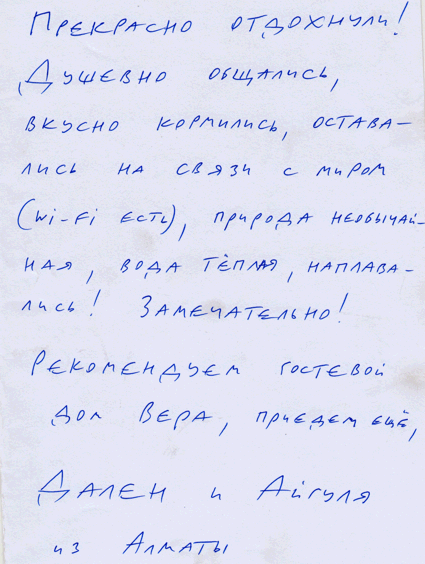 Прекрасно отдохнули!
Душевно общались,
вкусно кормились, остава-
лись на связи с миром
(Wi-Fi есть), природа необычай-
ная, вода тёплая, наплава-
лись! Замечательно!
Рекомендуем гостевой
дом Вера, приедем ещё,
Дален и Айгуля
из Алматы